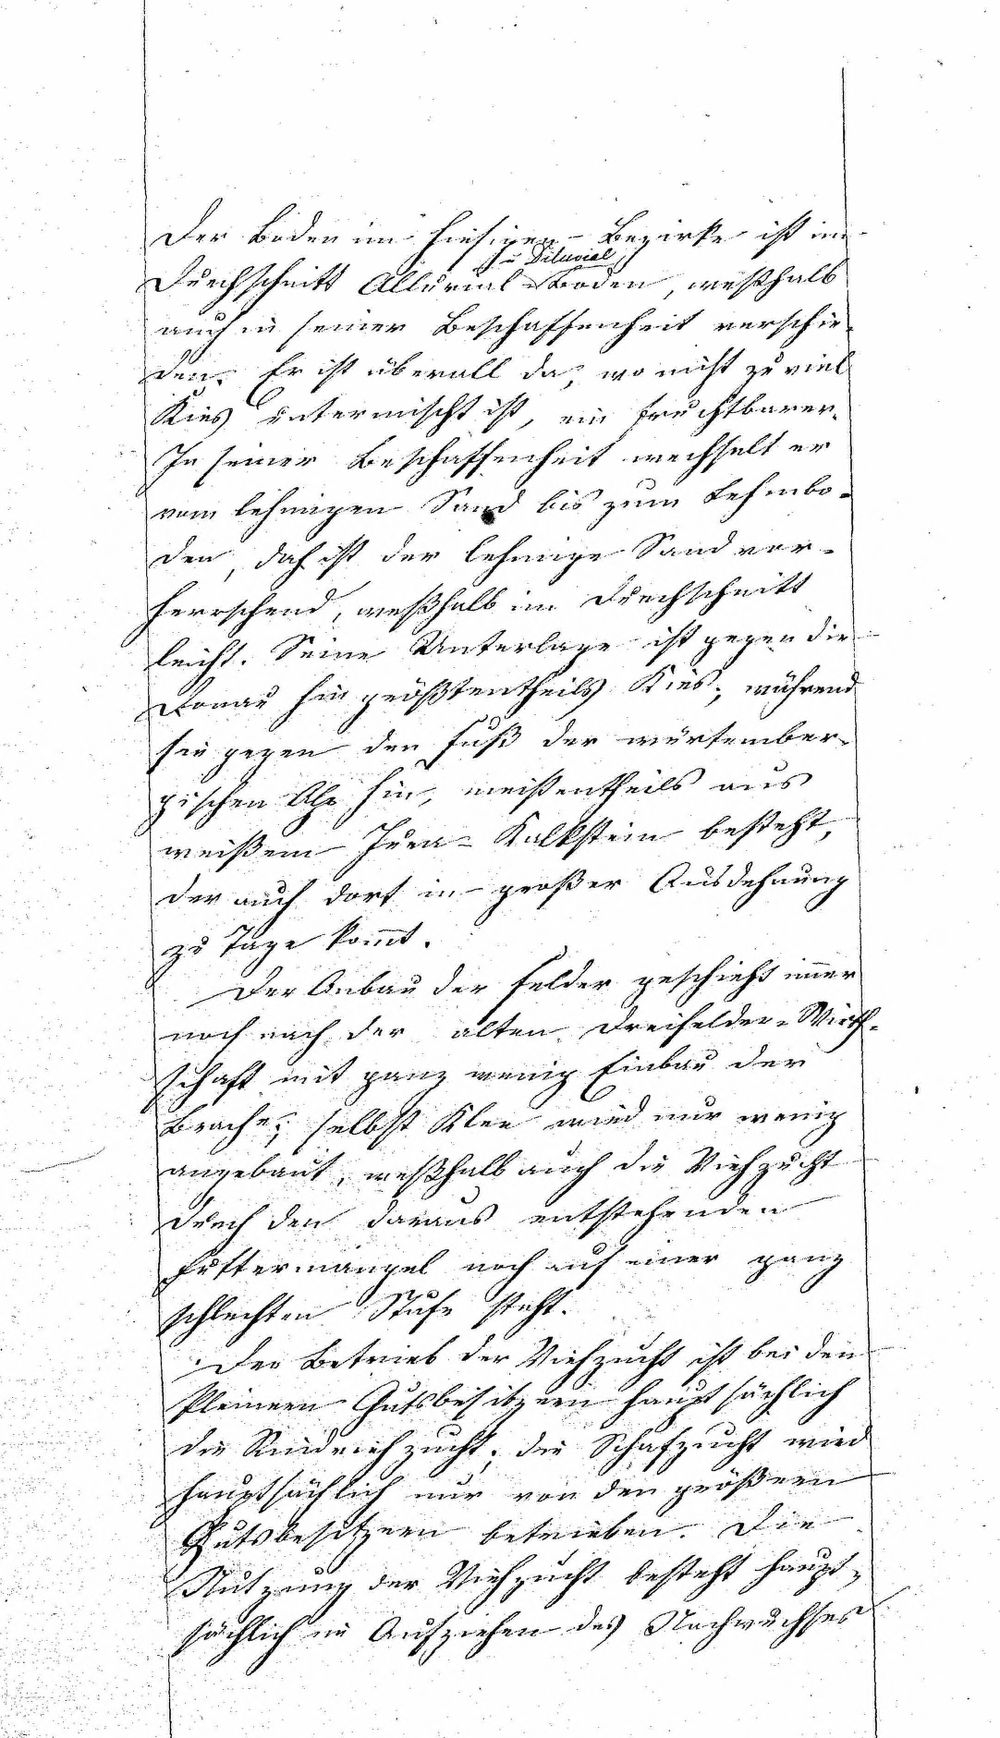 Der Boden im hiesigen Bezirke ist im
u Diluvial
Durchschnitt Alluvial-Boden, weßhalb
auch in seiner Beschaffenheit verschie-
den. Er ist überall da, wo nicht zu viel
Kies untermischt ist, ein fruchtbarer.
In seiner Beschaffenheit wechselt er
vom lehmigen Sand bis zum Lehmbo-
den, doch ist der lehmige Sand vor-
herrschend, weßhalb im Durchschnitt
leicht. Seine Unterlage ist gegen die
Donau hin größtentheils Kies, während
sie gegen den Fuß der würtember-
gischen Alp hin, meistentheils aus
weißem Jura-Kalkstein besteht,
der auch dort in großer Ausdehnung
zu Tage kom̄t.
Der Anbau der Felder geschieht im̄er
noch nach der alten Dreifelder-Wirth-
schaft mit ganz wenig Einbau der
Brache; selbst Klee wird nur wenig
angebaut, weßhalb auch die Viehzucht
durch den daraus entstehenden
Futtermangel noch auf einer ganz
schlechten Stufe steht.
Der Betrieb der Viehzucht ist bei den
kleinern Gutsbesitzern hauptsächlich
die Rindviehzucht; die Schafzucht wird
hauptsächlich nur von den größern
Gutsbesitzern betrieben. Die
Nutzung der Viehzucht besteht haupt-
sächlich im Aufziehen des Nachwuchses